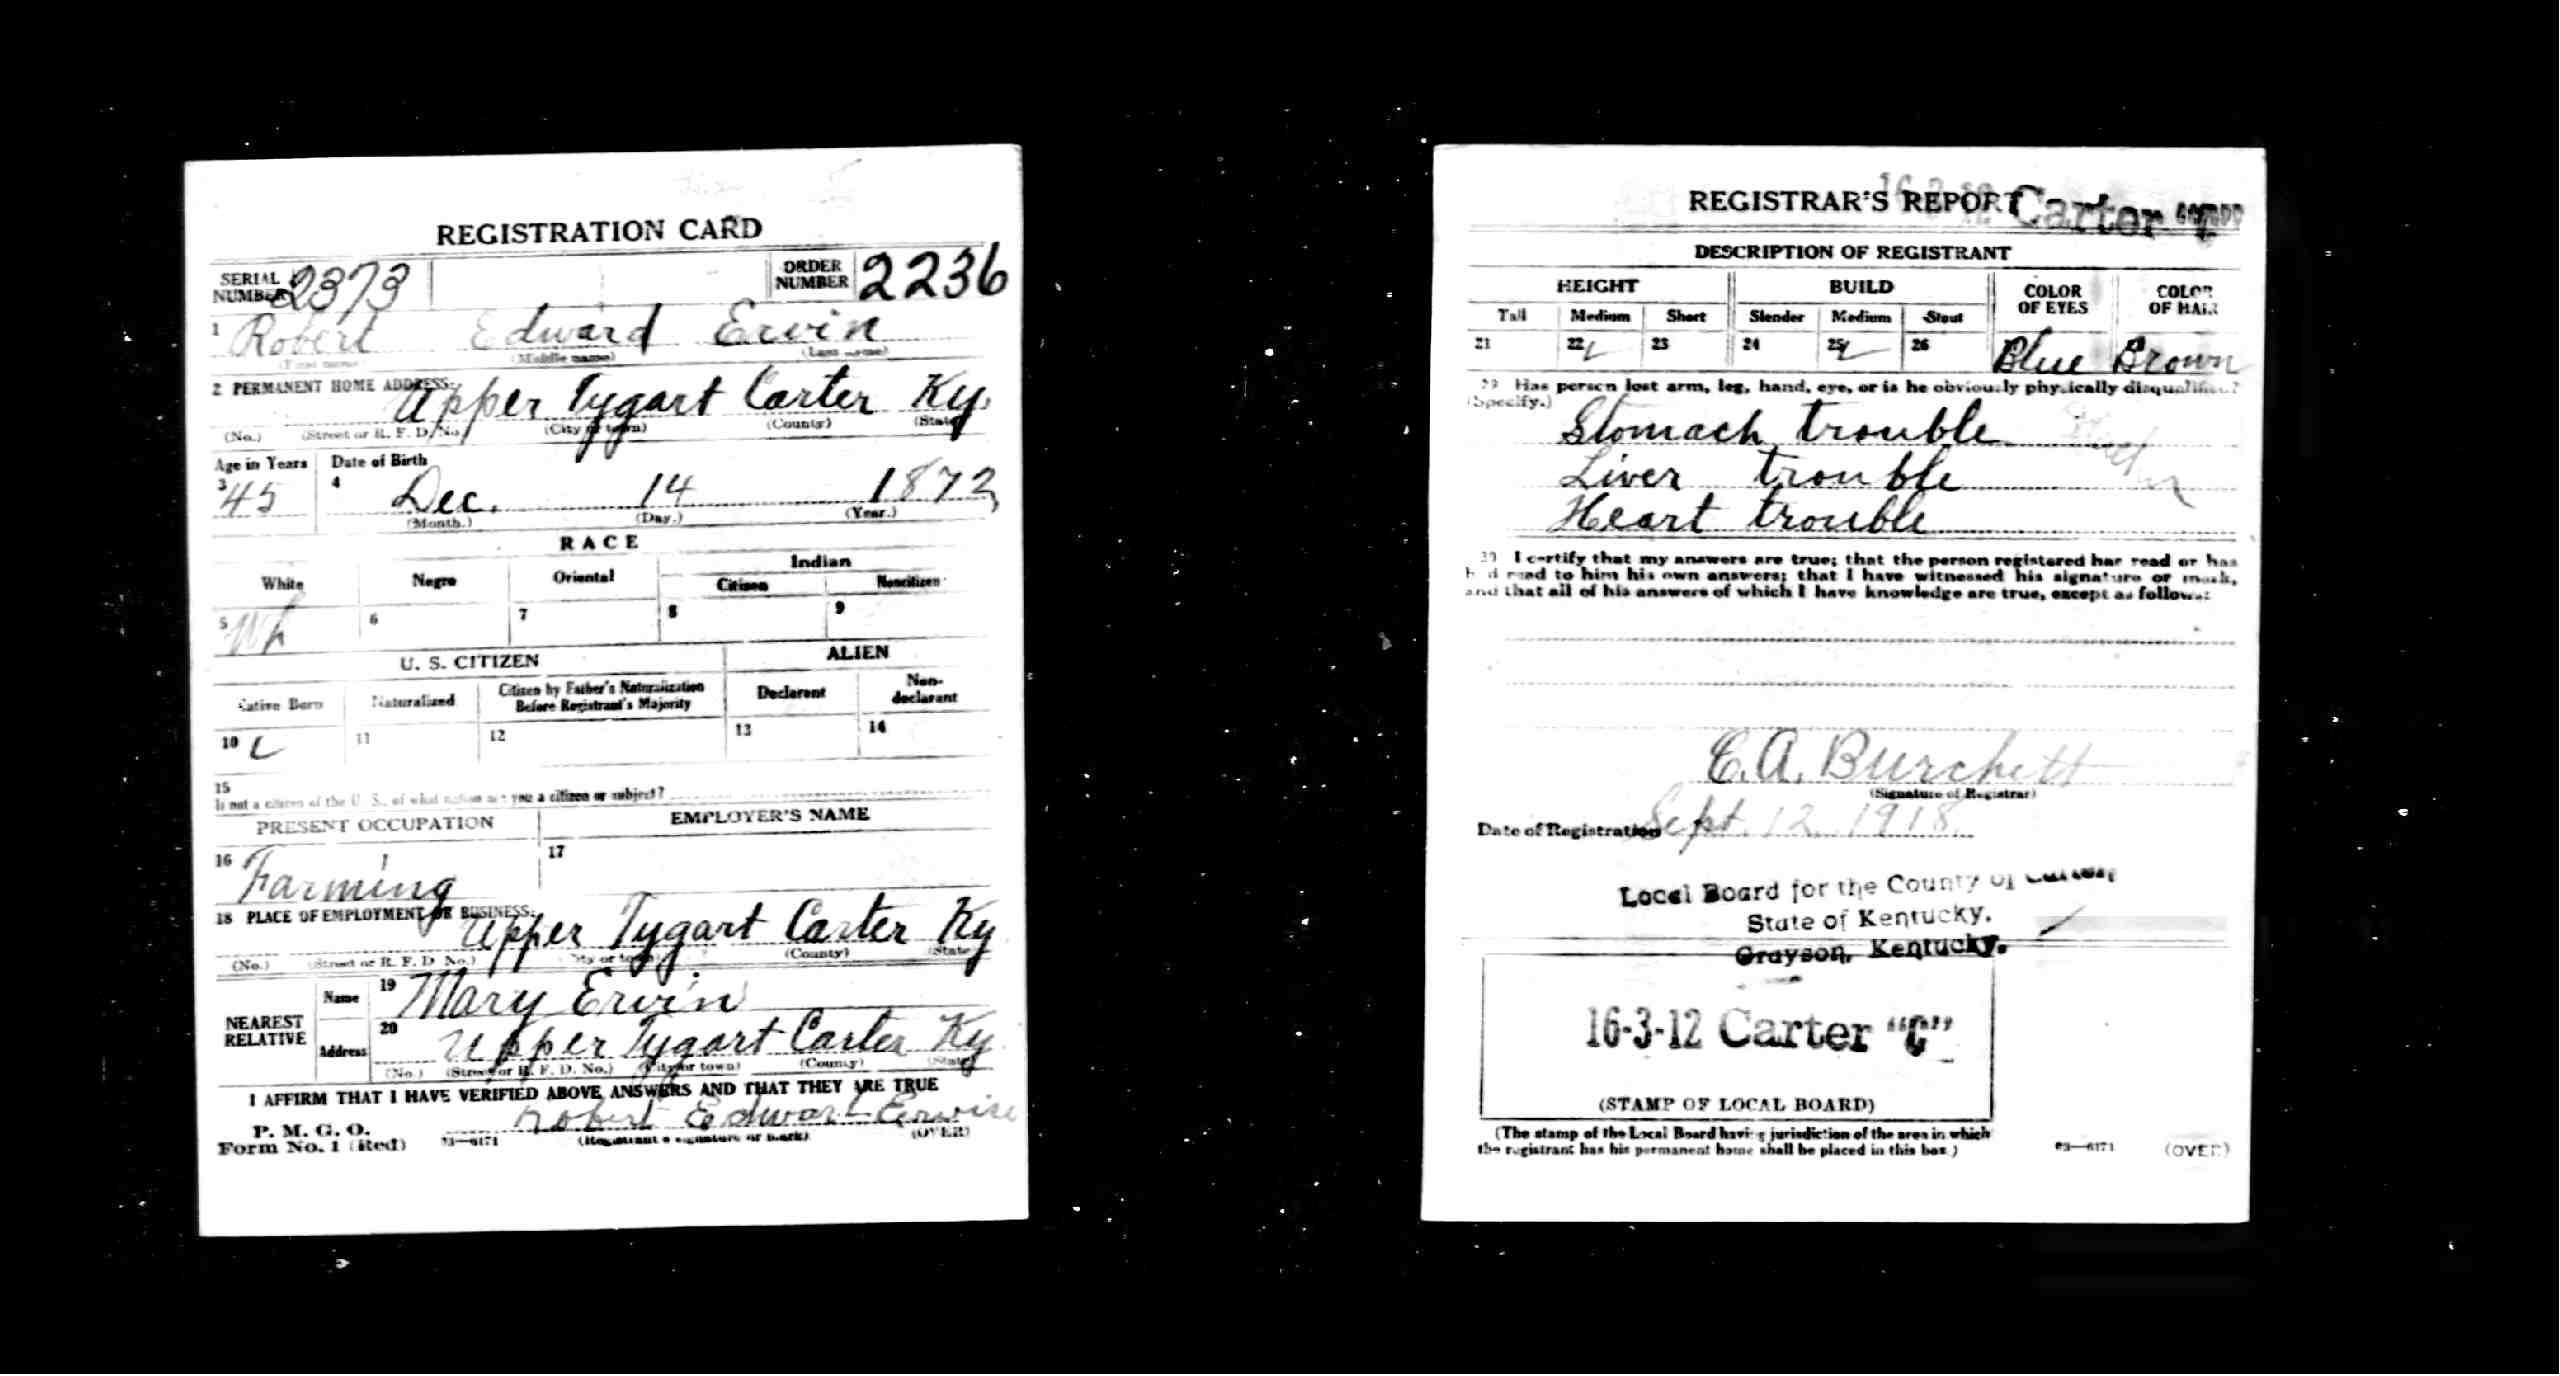 REGISTRATION CARD
SERIAL NUMBER 2373 ORDER NUMBER 2236
1 Robert Edward Ervin
(First name) (Middle name) (Last name)
2 PERMANENT HOME ADDRESS:
Upper Tygart Carter Ky.
(No.) (Street or R. F. D. No.) (City or town) (County) (State)
Age in Years Date of Birth
3 45 4 Dec. 14 1872
(Month.) (Day.) (Year.)
RACE
White Negro Oriental Indian
Citizen Noncitizen
5 Wh 6 7 8 9
U. S. CITIZEN ALIEN
Native Born Naturalized Citizen by Father's Naturalization Before Registrant's Majority Declarant Non-declarant
10 11 12 13 14
15
If not a citizen of the U. S., of what nation are you a citizen or subject?
PRESENT OCCUPATION EMPLOYER'S NAME
16 Farming 17
18 PLACE OF EMPLOYMENT OR BUSINESS:
Upper Tygart Carter Ky
(No.) (Street or R. F. D. No.) (City or town) (County) (State)
NEAREST RELATIVE Name 19 Mary Ervin
Address 20 Upper Tygart Carter Ky
(No.) (Street or R. F. D. No.) (City or town) (County) (State)
I AFFIRM THAT I HAVE VERIFIED ABOVE ANSWERS AND THAT THEY ARE TRUE
P. M. G. O.
Form No. 1 (Red) 03—6171 Robert Edwart
(Registrant's signature or mark) (OVER)
REGISTRAR'S REPORT Carter
DESCRIPTION OF REGISTRANT
HEIGHT BUILD COLOR OF EYES COLOR OF HAIR
Tall Medium Short Slender Medium Stout
21 22 23 24 25 26 Blue Brown
29 Has person lost arm, leg, hand, eye, or is he obviously physically disqualified?
(Specify.)
Stomach trouble
Liver trouble
Heart trouble
30 I certify that my answers are true; that the person registered has read or has
had read to him his own answers; that I have witnessed his signature or mark,
and that all of his answers of which I have knowledge are true, except as follows:
E. A. Burchett
(Signature of Registrar)
Date of Registration Sept. 12, 1918
Local Board for the County of Carter,
State of Kentucky.
Grayson, Kentucky.
16-3-12 Carter "C"
(STAMP OF LOCAL BOARD)
(The stamp of the Local Board having jurisdiction of the area in which
the registrant has his permanent home shall be placed in this box.)
03—6171 (OVER)